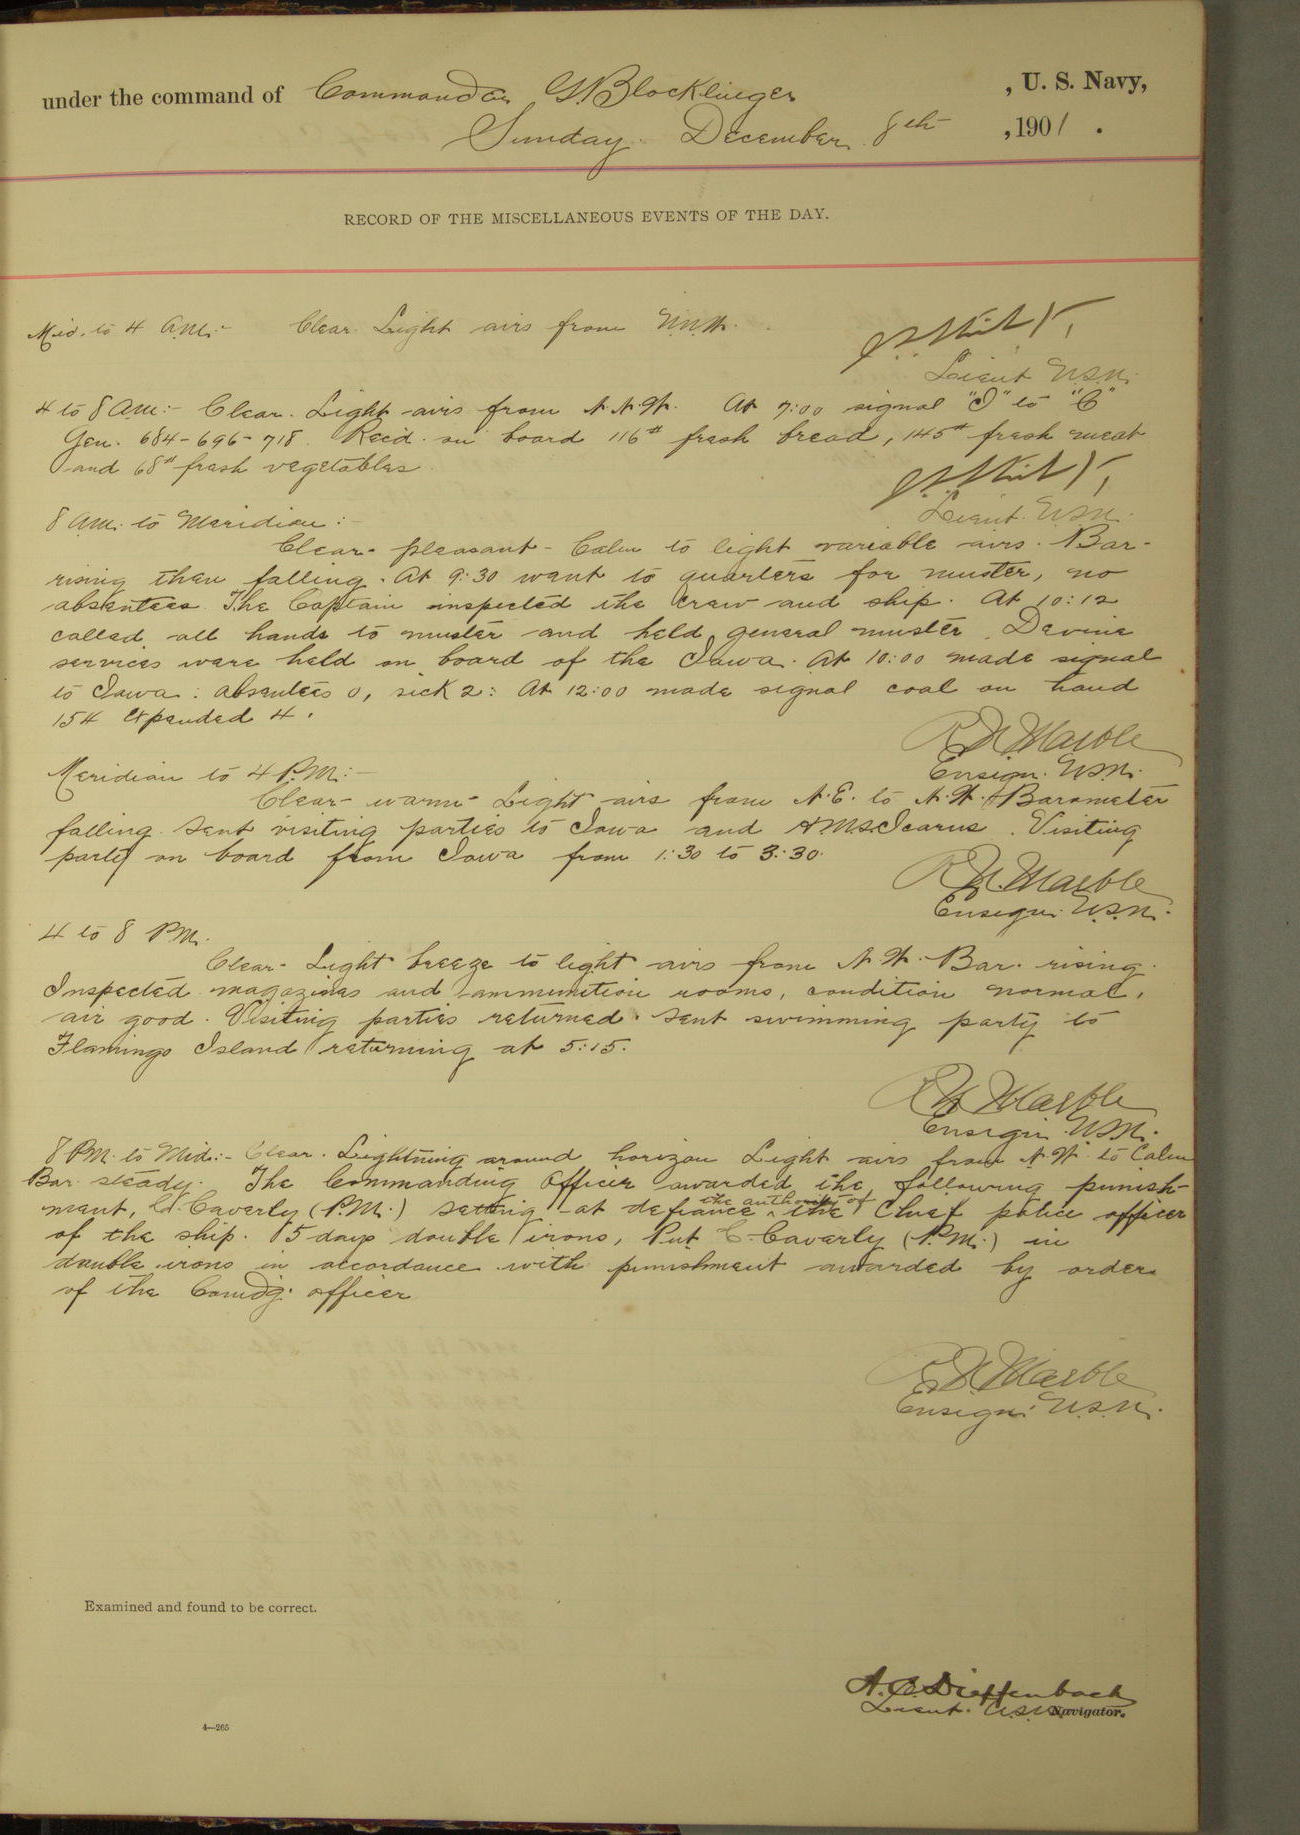 under the command of Commander G. Blocklinger, U. S. Navy,
Sunday December 8th, 1901.
RECORD OF THE MISCELLANEOUS EVENTS OF THE DAY.
Mid. to 4 A.M:- Clear. Light airs from N.N.W.
Lieut U.S.N.
4 to 8 A.M:- Clear. Light airs from N.N.W. At 7:00 signal "I" to "C"
Gen. 684-696-718. Recd. on board 116# fresh bread, 145# fresh meat
and 68# fresh vegetables.
Lieut. U.S.N.
8 A.M. to Meridian:-
Clear- pleasant- Calm to light variable airs. Bar-
rising then falling. At 9:30 went to quarters for muster, no
absentees. The Captain inspected the crew and ship. At 10:12
called all hands to muster and held general muster. Devine
services were held on board of the Iowa. At 10:00 made signal
to Iowa: absentees 0, sick 2: At 12:00 made signal coal on hand
154 expended 4.
R N Marble
Ensign. U.S.N.
Meridian to 4 P.M:-
Clear- warm- Light airs from N.E. to N.W. Barometer
falling. Sent visiting parties to Iowa and H.M.S. Icarus. Visiting
party on board from Iowa from 1:30 to 3:30.
R.N. Marble
Ensign. U.S.N.
4 to 8 P.M.
Clear- Light breeze to light airs from N.W. Bar. rising.
Inspected magazines and ammunition rooms, condition normal,
air good. Visiting parties returned. Sent swimming party to
Flamingo Island returning at 5:15.
R N Marble
Ensign U.S.N.
8 P.M. to Mid:- Clear. Lightning around horizon Light airs from N.W. to Calm
Bar. steady. The Commanding Officer awarded the following punish-
ment, C. Caverly (P.M.) setting at defiance ^ the authority of the Chief police officer
of the ship. 5 days double irons, Put C. Caverly (P.M.) in
double irons in accordance with punishment awarded by order
of the Comdg. officer
R N Marble
Ensign. U.S.N.
Examined and found to be correct.
A. C. Dieffenbach
Lieut. U.S.N. Navigator.
4—265